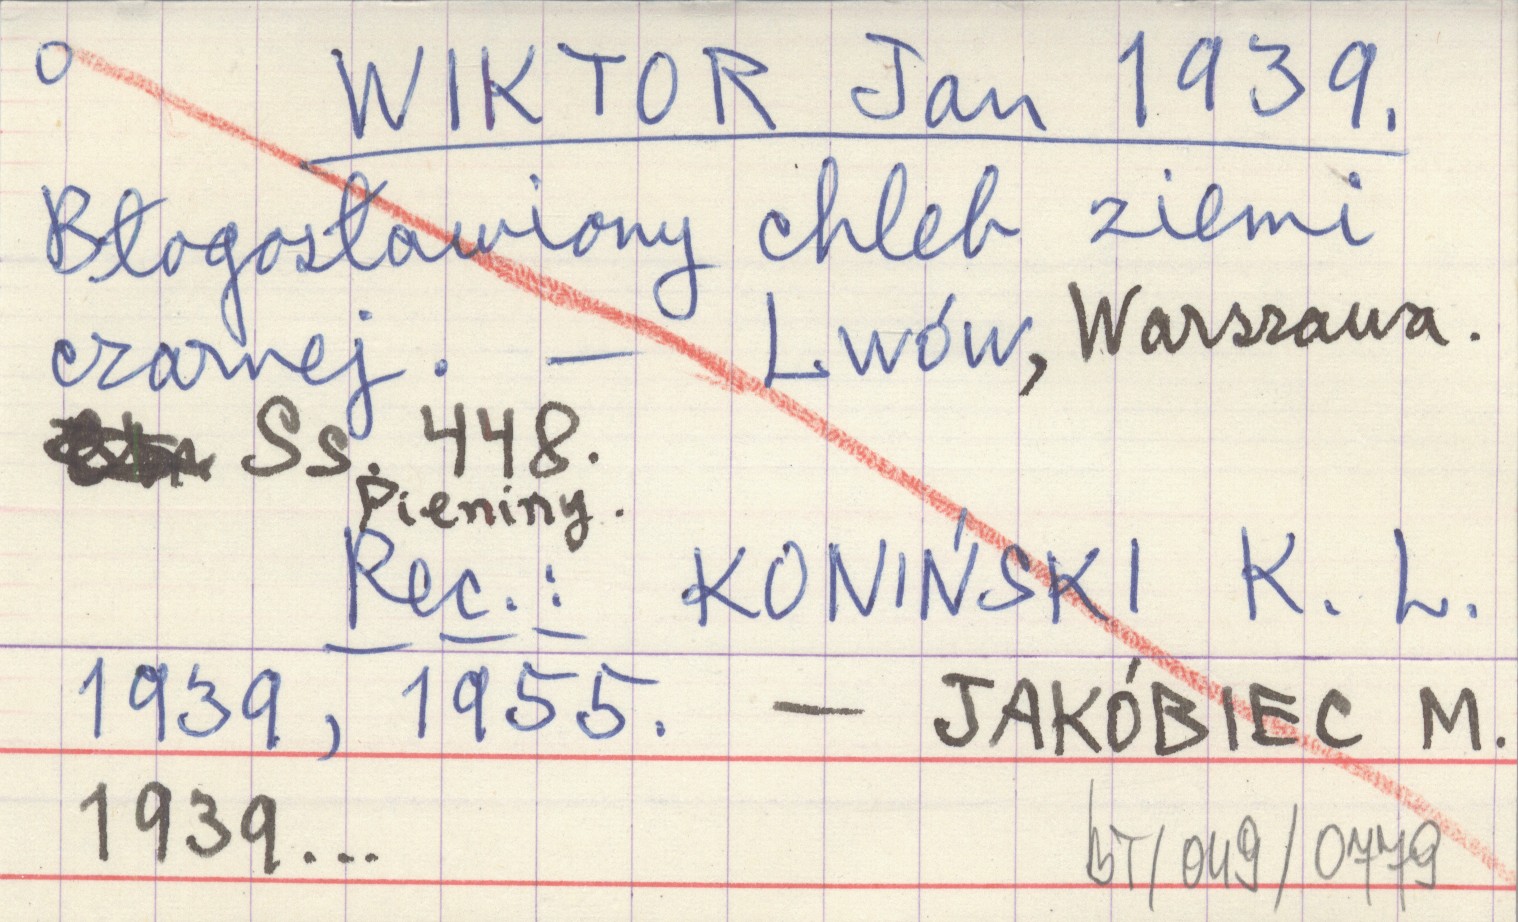 O WIKTOR Jan 1939.
Błogosławiony chleb ziemi
czarnej. — Lwów, Warszawa.
Ss. 448.
Pieniny.
Rec.: KONIŃSKI K. L.
1939, 1955. — JAKÓBIEC M.
1939...
BT/049/0779